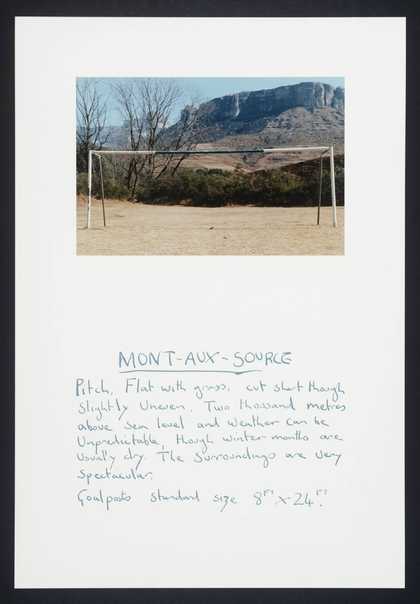 MONT-AUX-SOURCE
Pitch. Flat with grass, cut short though
slightly Uneven. Two thousand metres
above sea level and weather can be
Unpredictable, though winter months are
usually dry. The Surroundings are very
spectacular.
Goalposts standard size 8ft x 24ft.